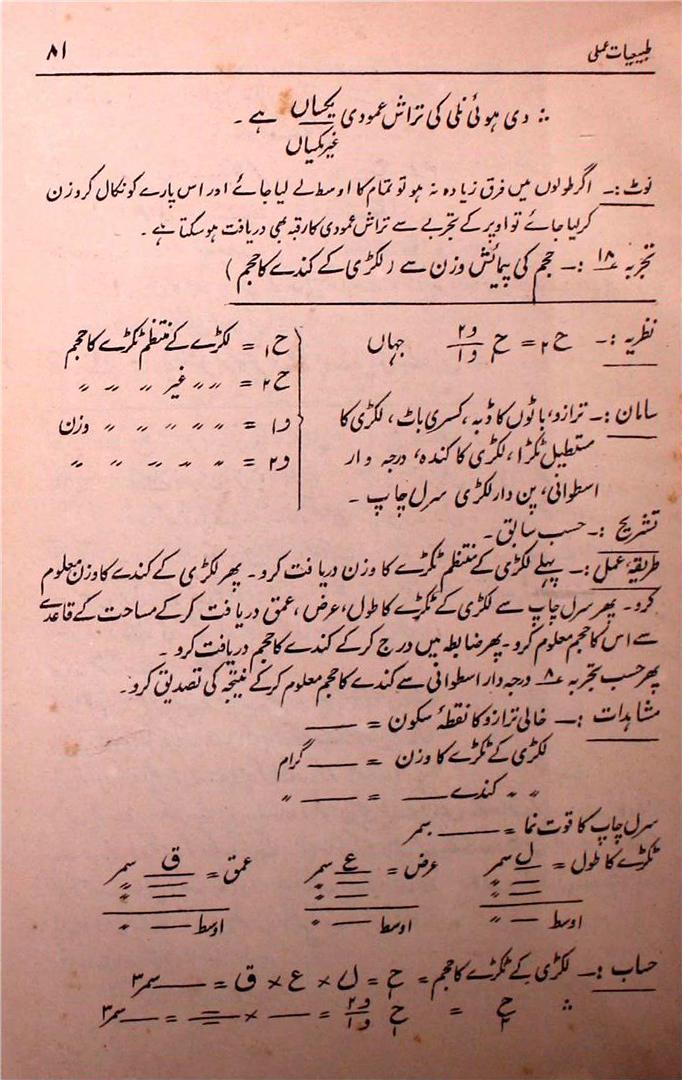 طبیعیات عملی ۸۱
∵ دی ہوئی نلی کی تراش عمودی یکساں ہے ۔
غیر یکساں
نوٹ :۔ اگر طولوں میں فرق زیادہ نہ ہو تو تمام کا اوسط لے لیا جائے اور اس پارے کو نکال کر وزن
کر لیا جائے تو اوپر کے تجربے سے تراش عمودی کا رقبہ بھی دریافت ہو سکتا ہے ۔
تجربہ ۱۸ :۔ حجم کی پیمائش وزن سے (لکڑی کے کندے کا حجم)
نظریہ :۔ ح۲ = ح۱ و۲/و۱ جہاں
ح۱ = لکڑے کے منتظم ٹکڑے کا حجم
ح۲ = 〃 〃 غیر 〃 〃 〃
و۱ = 〃 〃 〃 〃 〃 وزن
و۲ = 〃 〃 〃 〃 〃
سامان :۔ ترازو، باٹوں کا ڈبہ، کسری باٹ، لکڑی کا
مستطیل ٹکڑا، لکڑی کا کندہ، درجہ وار
اسطوانی، پن دار لکڑی سرل چاپ ۔
تشریح :۔ حسب سابق ۔
طریقہ عمل :۔ پہلے لکڑی کے منتظم ٹکڑے کا وزن دریافت کرو۔ پھر لکڑی کے کندے کا وزن معلوم
کرو۔ پھر سرل چاپ سے لکڑی کے ٹکڑے کا طول، عرض، عمق دریافت کر کے مساحت کے قاعدے
سے اس کا حجم معلوم کرو۔ پھر ضابطہ میں درج کر کے کندے کا حجم دریافت کرو ۔
پھر حسب تجربہ ۸ درجہ دار اسطوانی سے کندے کا حجم معلوم کر کے نتیجہ کی تصدیق کرو۔
مشاہدات :۔ خالی ترازو کا نقطۂ سکون = ——
لکڑی کے ٹکڑے کا وزن = —— گرام
〃 〃 کندے —— = —— 〃
سرل چاپ کا قوت نما = —— سمر
ٹکڑے کا طول = ل سمر عرض = ع سمر عمق = ق سمر
— 〃 — 〃 — 〃
— 〃 — 〃 — 〃
اوسط — 〃 اوسط — 〃 اوسط — 〃
حساب :۔ لکڑی کے ٹکڑے کا حجم = ح۱ = ل × ع × ق = —— سمر۳
∵ ح۲ = ح۱ و۲/و۱ = — × — = — سمر۳